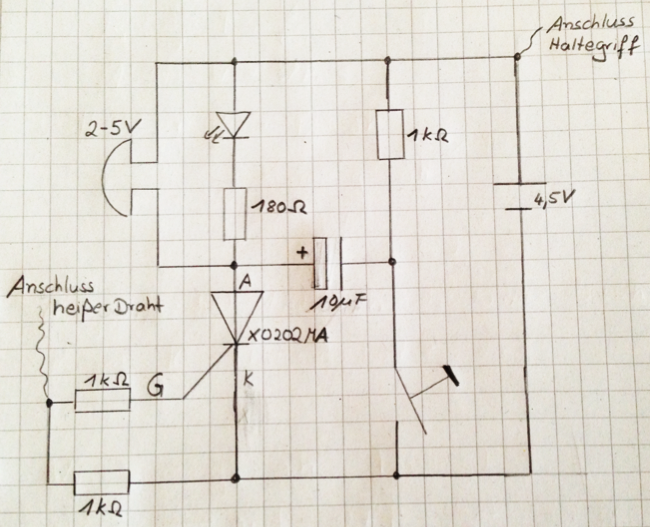 Anschluss
Haltegriff
2-5V
1kΩ
180Ω
4,5V
+
10µF
A
Anschluss
heißer Draht
X0202MA
1kΩ
G
K
1kΩ